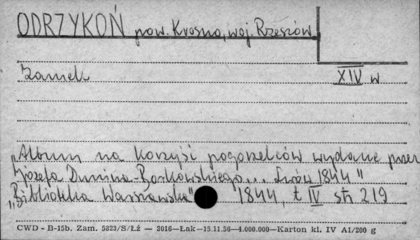 ODRZYKOŃ pow. Krosno, woj. Rzeszów
Zamek XIV w
„Album na korzyść pogorzelców wydane przez
Józefa Dunina-Borkowskiego... Lwów 1844"
„Biblioteka Warszawska" 1844, t IV str 219
CWD - B-15b. Zam. 5823/S/Łź — 3016—Lak—15.11.56—4.000.000—Karton kl. IV A1/200 g